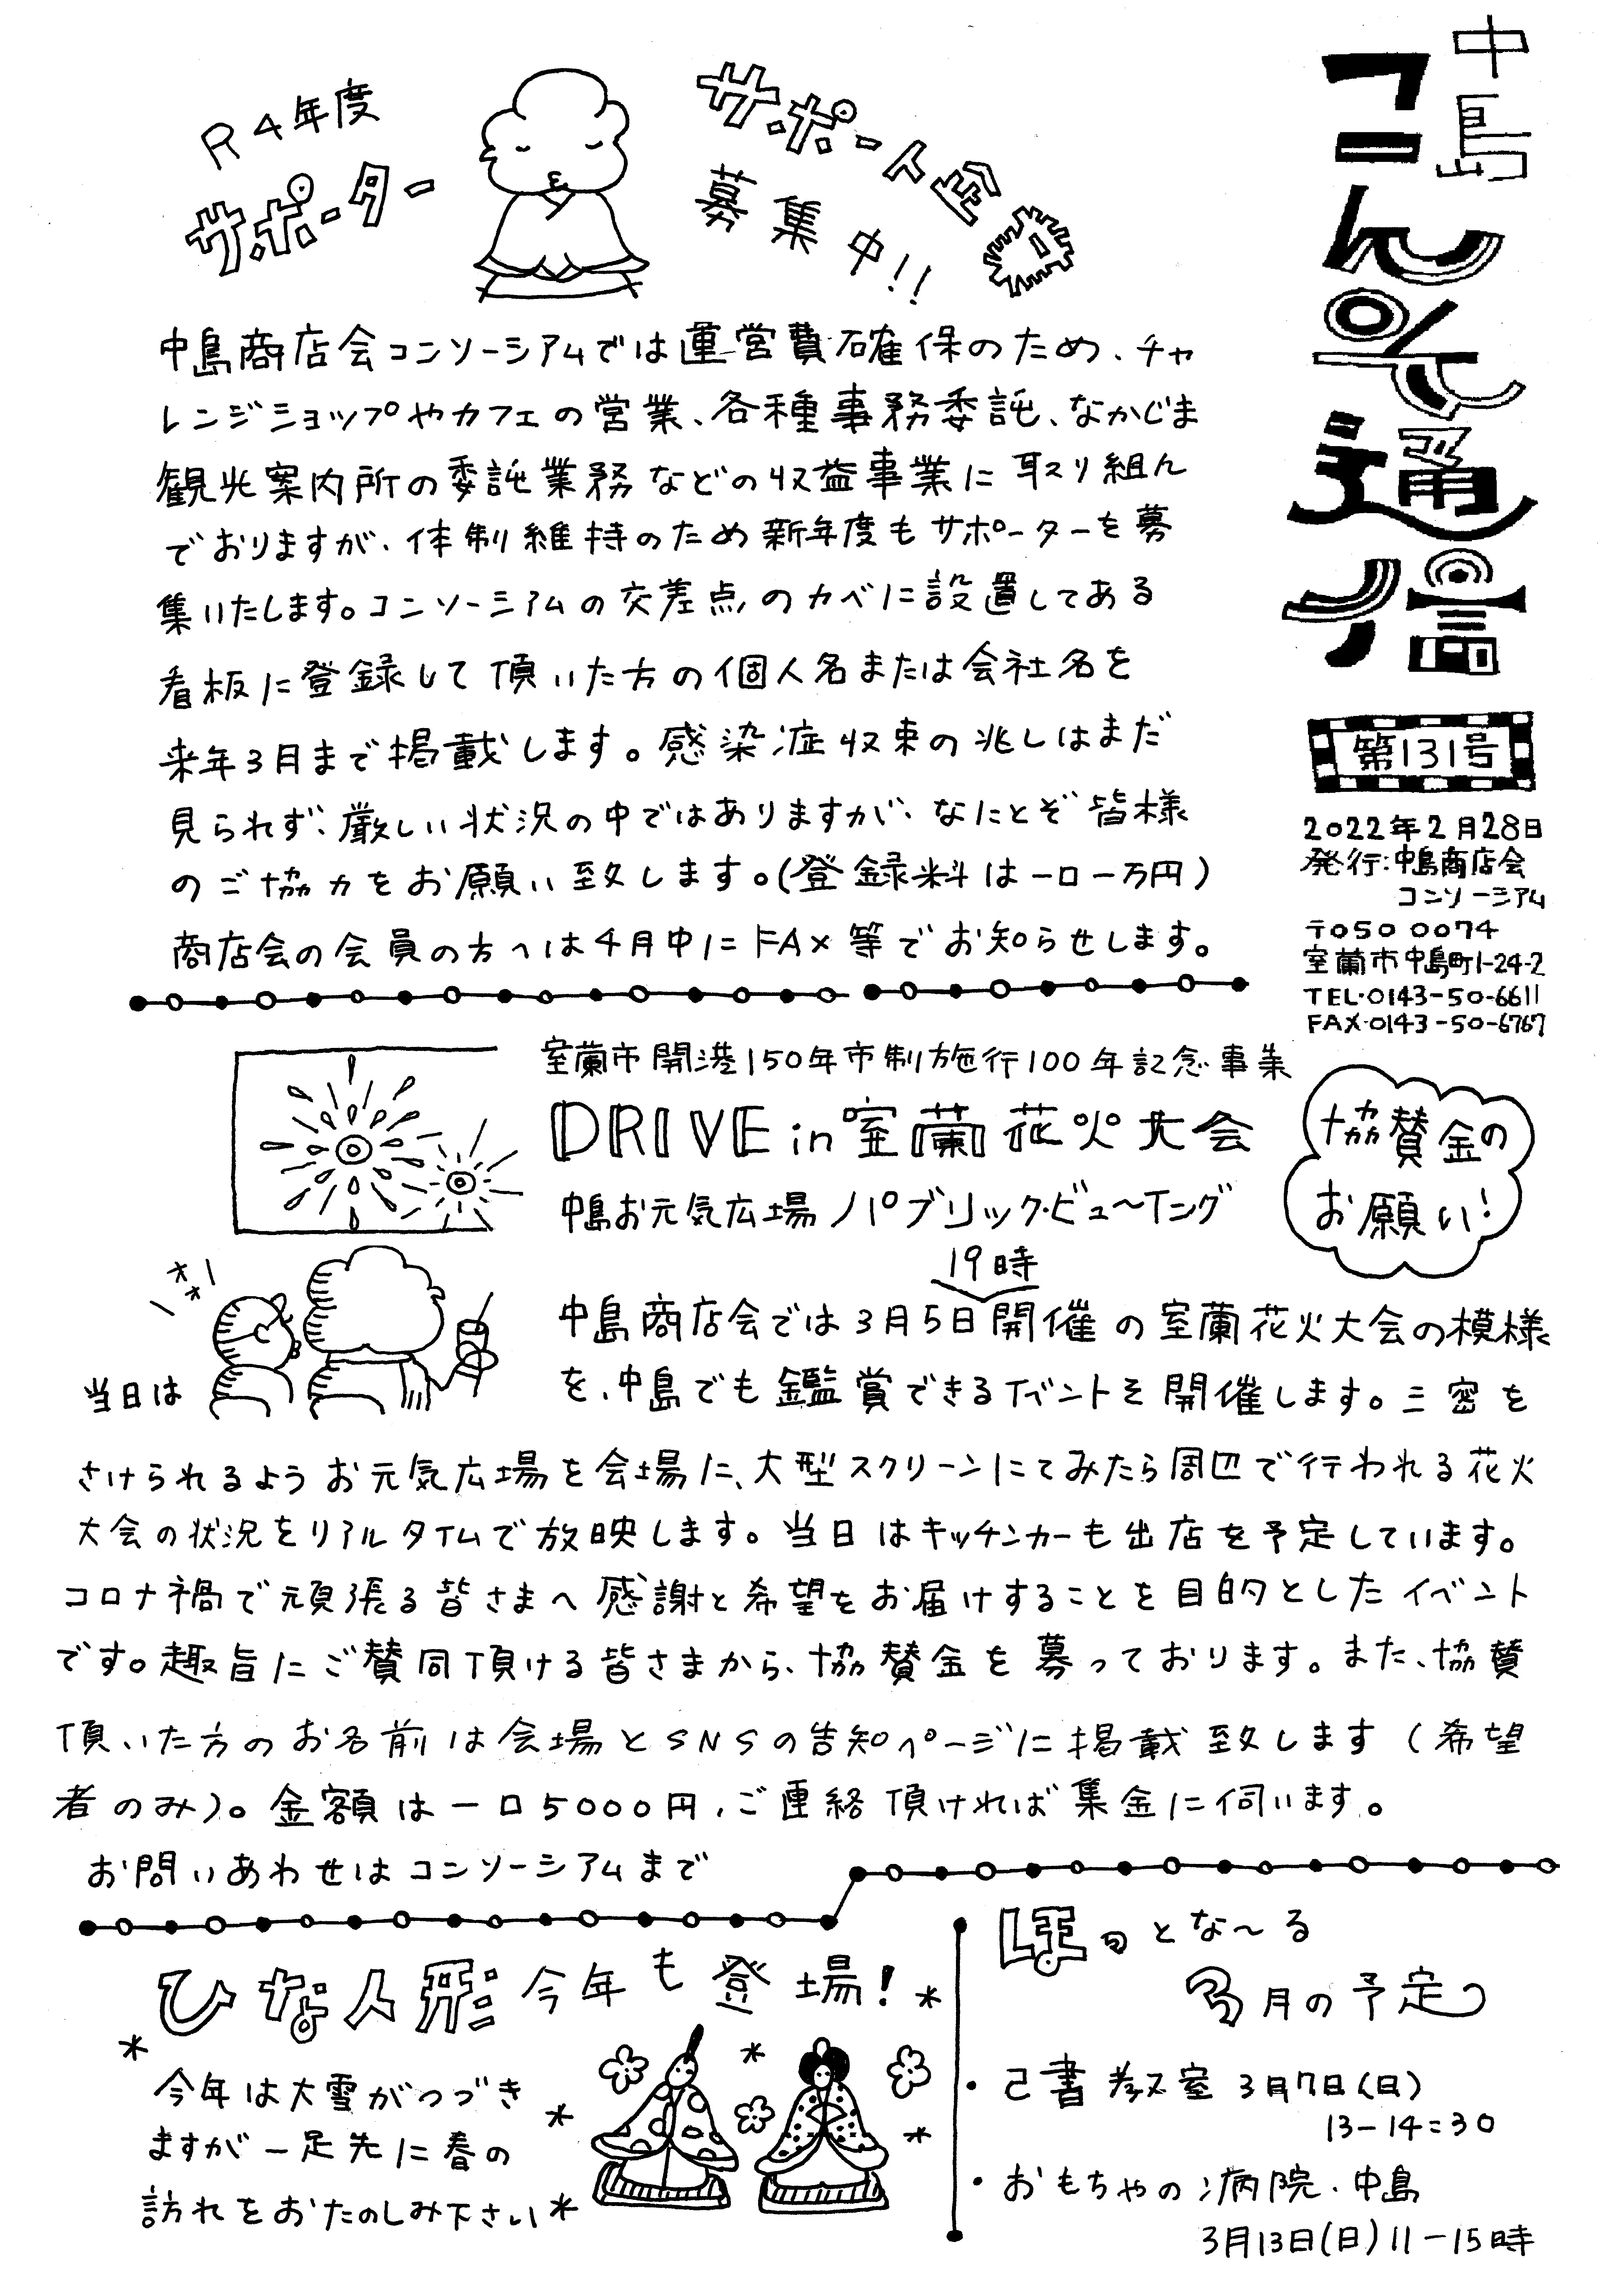 中島
コンソ通信
第131号
2022年2月28日
発行:中島商店会
コンソーシアム
〒050 0074
室蘭市中島町1-24-2
TEL・0143-50-6611
FAX・0143-50-6767
R4年度
サポーター
サポート企業
募集中!!
中島商店会コンソーシアムでは運営費確保のため、チャ
レンジショップやカフェの営業、各種事務委託、なかじま
観光案内所の委託業務などの収益事業に取り組ん
でおりますが、体制維持のため新年度もサポーターを募
集いたします。コンソーシアムの交差点のカベに設置してある
看板に登録して頂いた方の個人名または会社名を
来年3月まで掲載します。感染症収束の兆しはまだ
見られず、厳しい状況の中ではありますが、なにとぞ皆様
のご協力をお願い致します。(登録料は一口一万円)
商店会の会員の方へは4月中にFAX等でお知らせします。
室蘭市開港150年市制施行100年記念事業
DRIVE in 室蘭花火大会
中島お元気広場パブリック・ビューイング
協賛金の
お願い!
19時
中島商店会では3月5日開催の室蘭花火大会の模様
を、中島でも鑑賞できるイベントを開催します。三密を
当日は
さけられるようお元気広場を会場に、大型スクリーンにてみたら周辺で行われる花火
大会の状況をリアルタイムで放映します。当日はキッチンカーも出店を予定しています。
コロナ禍で頑張る皆さまへ感謝と希望をお届けすることを目的としたイベント
です。趣旨にご賛同頂ける皆さまから、協賛金を募っております。また、協賛
頂いた方のお名前は会場とSNSの告知ページに掲載致します(希望
者のみ)。金額は一口5000円、ご連絡頂ければ集金に伺います。
お問いあわせはコンソーシアムまで
ひな人形今年も登場!
今年は大雪がつづき
ますが一足先に春の
訪れをおたのしみ下さい
ほっとな〜る
3月の予定
・己書教室 3月7日(日)
13-14=30
・おもちゃの病院・中島
3月13日(日)11-15時